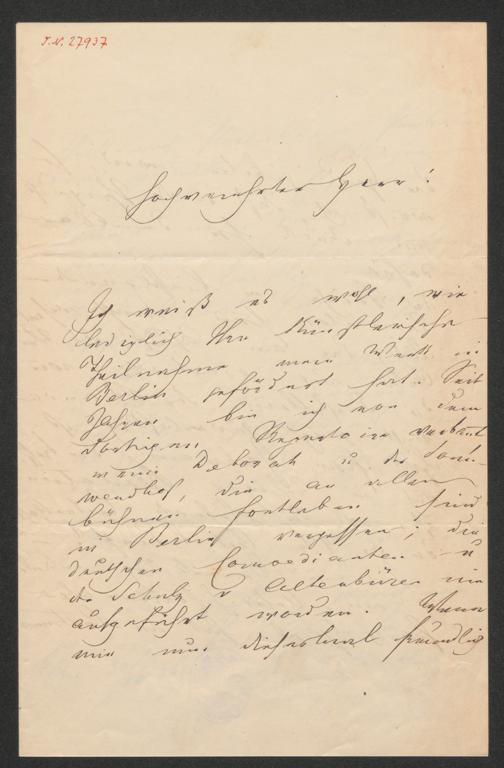 I.N. 27937
Hochverehrter Herr!
Ich weiß es wohl, wie
lediglich Ihre Künstlerische
Theilnahme mein Werk in
Berlin gefördert hat. Seit
Jahren bin ich von dem
dortigen Repertoire verbannt
meine Deborah u der Sonn-
wendhof, die an allen
bühnen fortleben sind
in Berlin vergessen; die
deutschen Comoedianten u
der Schulz v Altenbüren nie
aufgeführt worden. Wenn
mir nun dießmal freundlich